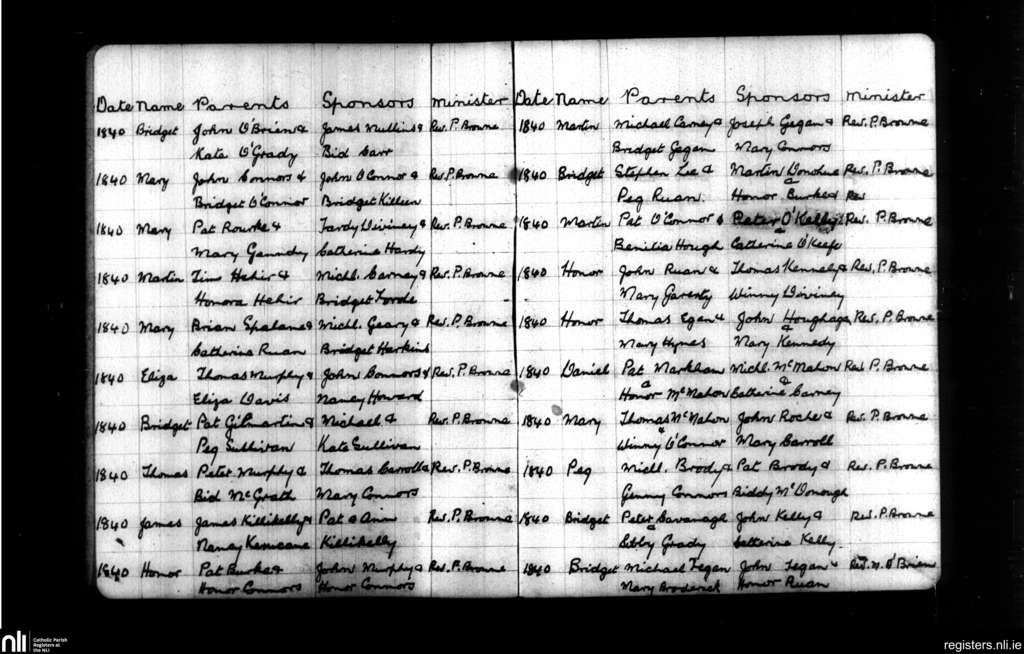 Date Name Parents Sponsors Minister
1840 Bridget John O'Brien & James Mullins & Rev. P. Browne
Kate O'Grady Bid Carr
1840 Mary John Connors & John O'Connor & Rev. P. Browne
Bridget O'Connor Bridget Killeen
1840 Mary Pat Rourke & Tardy Diviney & Rev. P. Browne
Mary Catherine Hardy
1840 Martin Tim Hehir & Michl. Carney & Rev. P. Browne
Honora Hehir Bridget Forde
1840 Mary Brian Spalane & Michl. Geary & Rev. P. Browne
Catherine Ruan Bridget Harkins
1840 Eliza Thomas Murphy & John Connors & Rev. P. Browne
Eliza Davis Nancy Howard
1840 Bridget Pat Gilmartin & Michael & Rev. P. Browne
Peg Sullivan Kate Sullivan
1840 Thomas Peter Murphy & Thomas Carroll & Rev. P. Browne
Bid McGrath Mary Connors
1840 James James Killikelly & Pat & Ann Rev. P. Browne
Nancy Killikelly
1840 Honor Pat Burke & John Murphy & Rev. P. Browne
Honor Connors Honor Connors
Date Name Parents Sponsors Minister
1840 Martin Michael Carney & Joseph Gegan & Rev. P. Browne
Bridget Gegan Mary Connors
1840 Bridget Stephen Lee & Martin Donohue & Rev. P. Browne
Peg Ruan Honor Burke Rev
1840 Martin Pat O'Connor & Peter O'Kelly & Rev. P. Browne
Benitia Hough Catherine O'Keefe
1840 Honor John Ruan & Thomas Kennely & Rev. P. Browne
Mary Garenty Winney Diviney
1840 Honor Thomas Egan & John Houghage & Rev. P. Browne
Mary Hynes Mary Kennedy
1840 Daniel Pat Markham & Michl. McMahon & Rev P. Browne
Honor McMahon Catherine Carney
1840 Mary Thomas McMahon & John Roche & Rev. P. Browne
Winny O'Connor Mary Carroll
1840 Peg Michl. Brody & Pat Brody & Rev. P. Browne
Genny Connors Biddy McDonough
1840 Bridget Peter Cavanagh & John Kelly & Rev. P. Browne
Sibby Grady Catherine Kelly.
1840 Bridget Michael Fegan John Fegan & Rev. M. O'Brien
Mary Broderick Honor Ruan
nli
Catholic Parish
Registers at
the NLI
registers.nli.ie